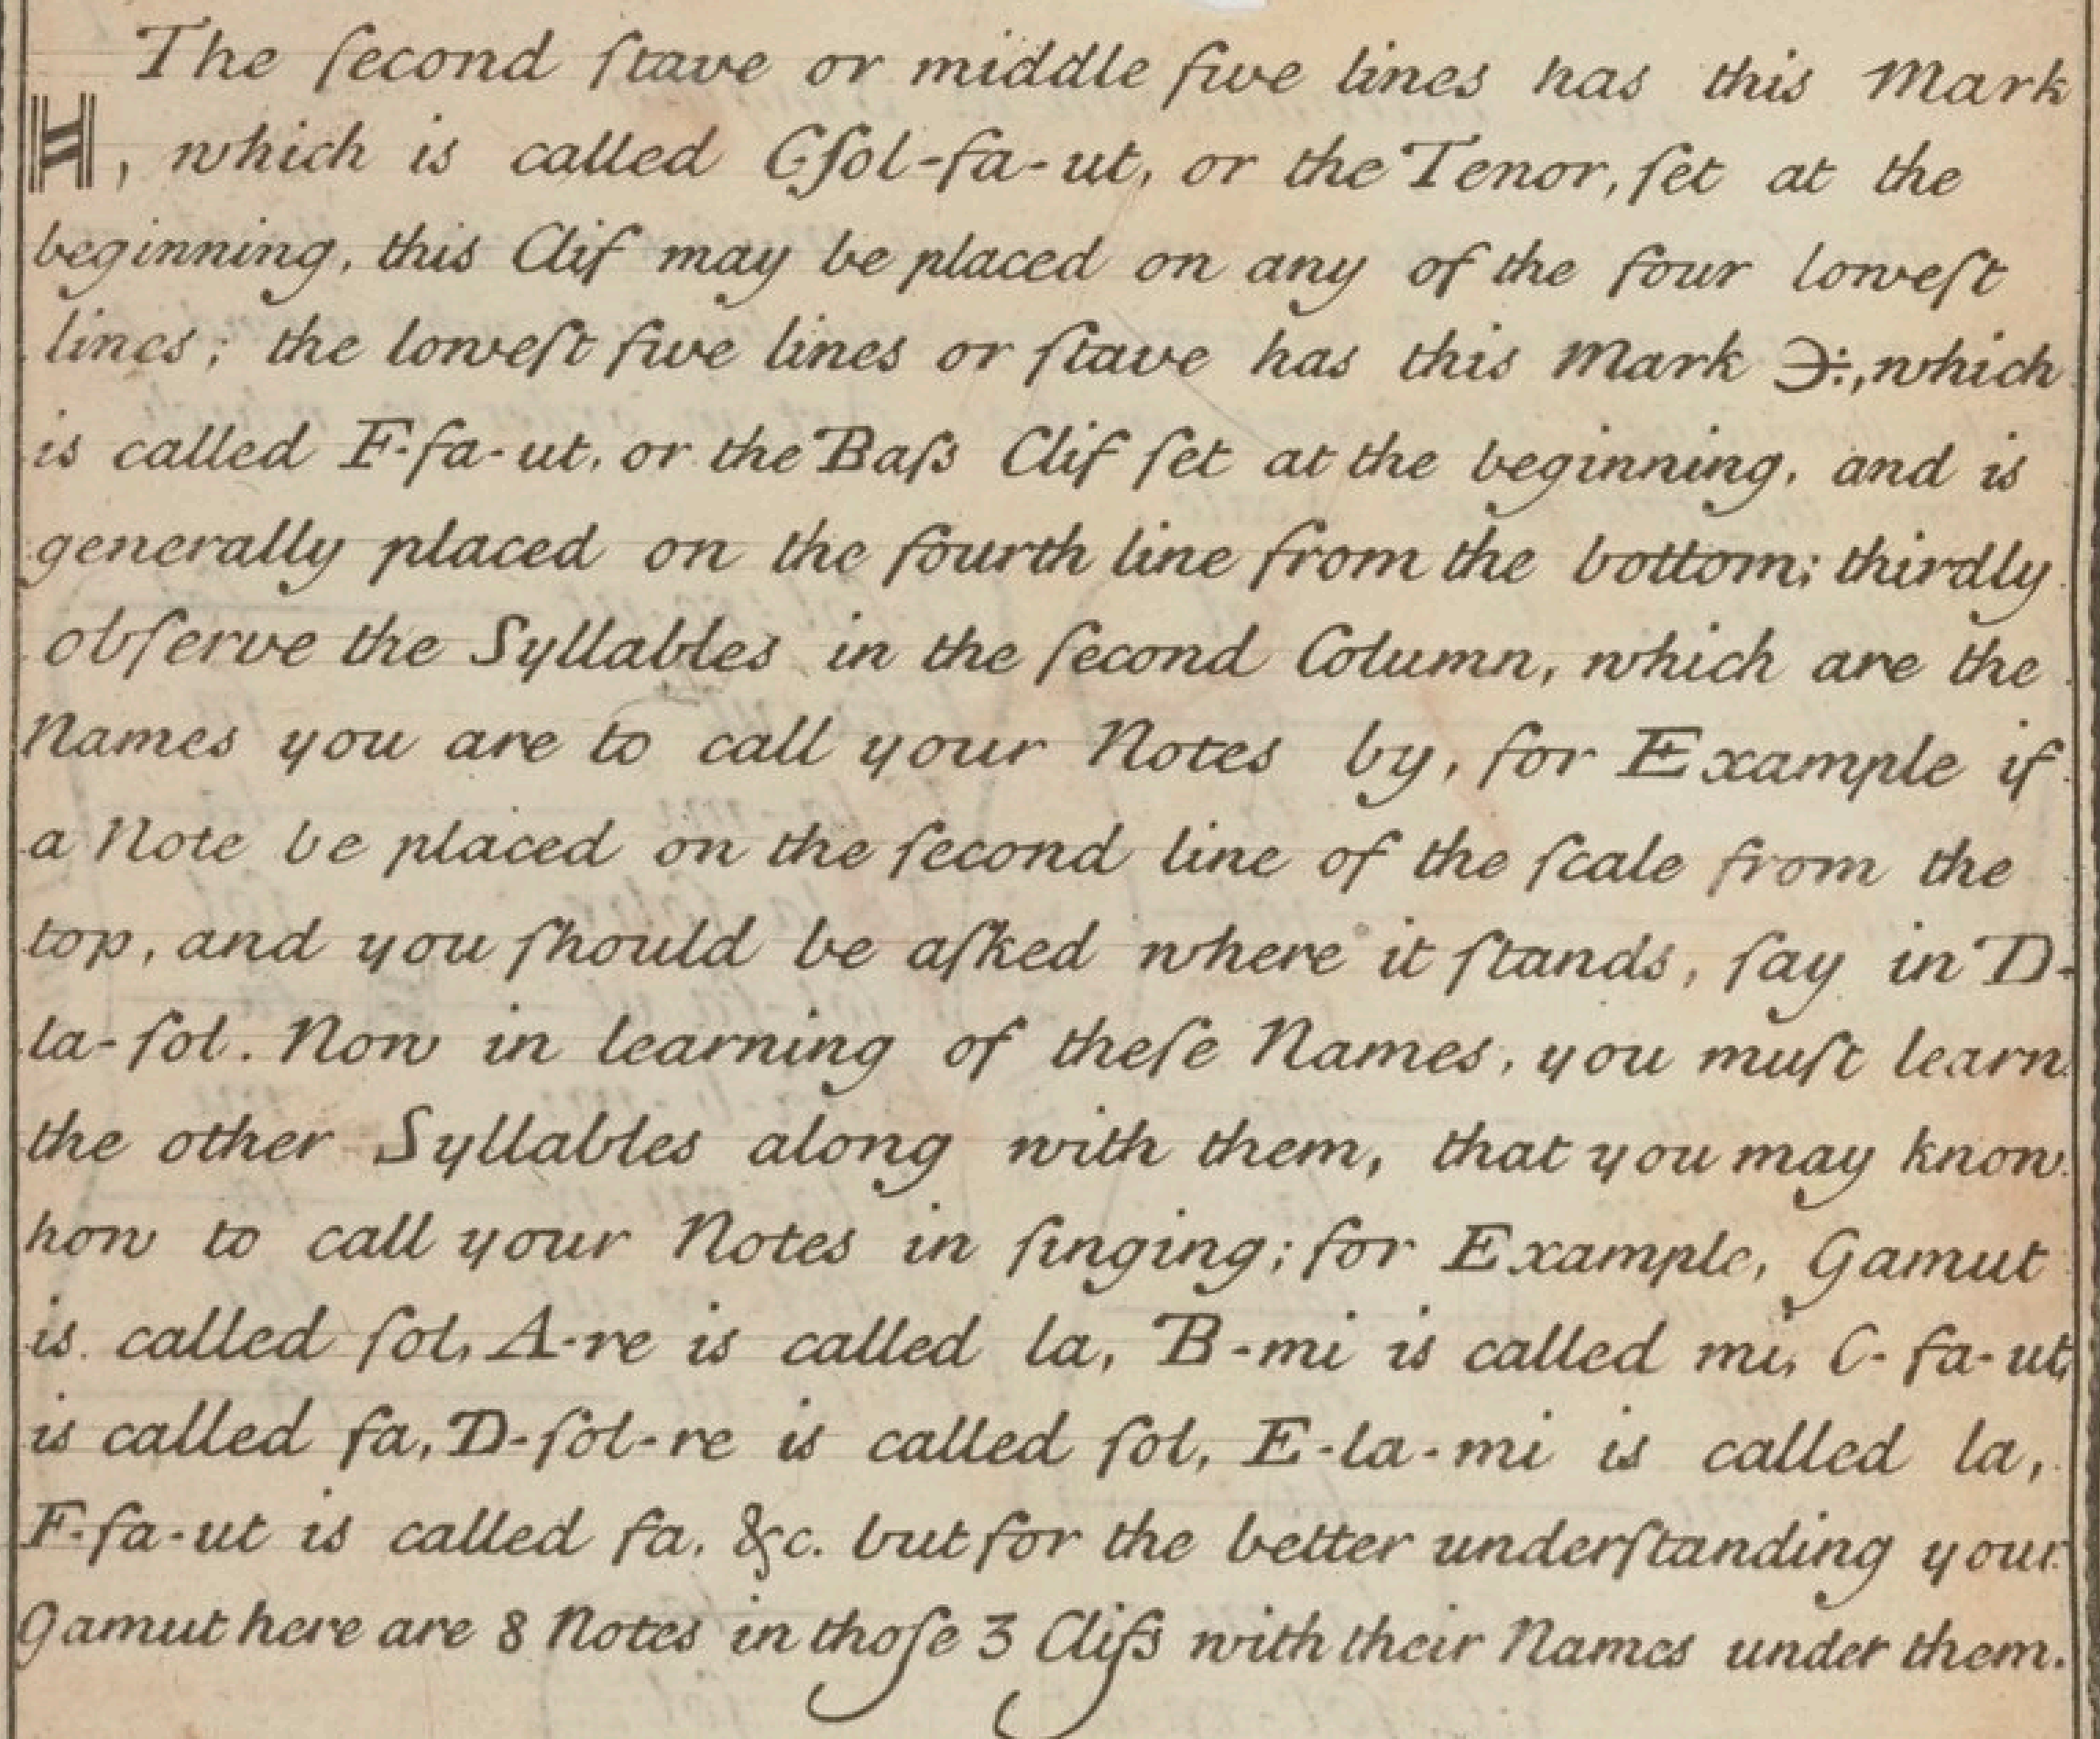 The ſecond ſtave or middle five lines has this Mark
𝄡, which is called Cſol-fa-ut, or the Tenor, ſet at the
beginning, this Clif may be placed on any of the four loweſt
lines; the loweſt five lines or ſtave has this Mark 𝄢, which
is called F-fa-ut, or the Baſs Clif ſet at the beginning, and is
generally placed on the fourth line from the bottom; thirdly
obſerve the Syllables in the ſecond Column, which are the
Names you are to call your Notes by, for Example if
a Note be placed on the ſecond line of the ſcale from the
top, and you ſhould be aſked where it ſtands, ſay in D-
la-ſol. Now in learning of theſe Names, you muſt learn
the other Syllables along with them, that you may know
how to call your Notes in ſinging; for Example, Gamut
is called ſol, A-re is called la, B-mi is called mi, C-fa-ut,
is called fa, D-ſol-re is called ſol, E-la-mi is called la,
F-fa-ut is called fa, &c. but for the better underſtanding your
Gamut here are 8 Notes in thoſe 3 Clifs with their Names under them.